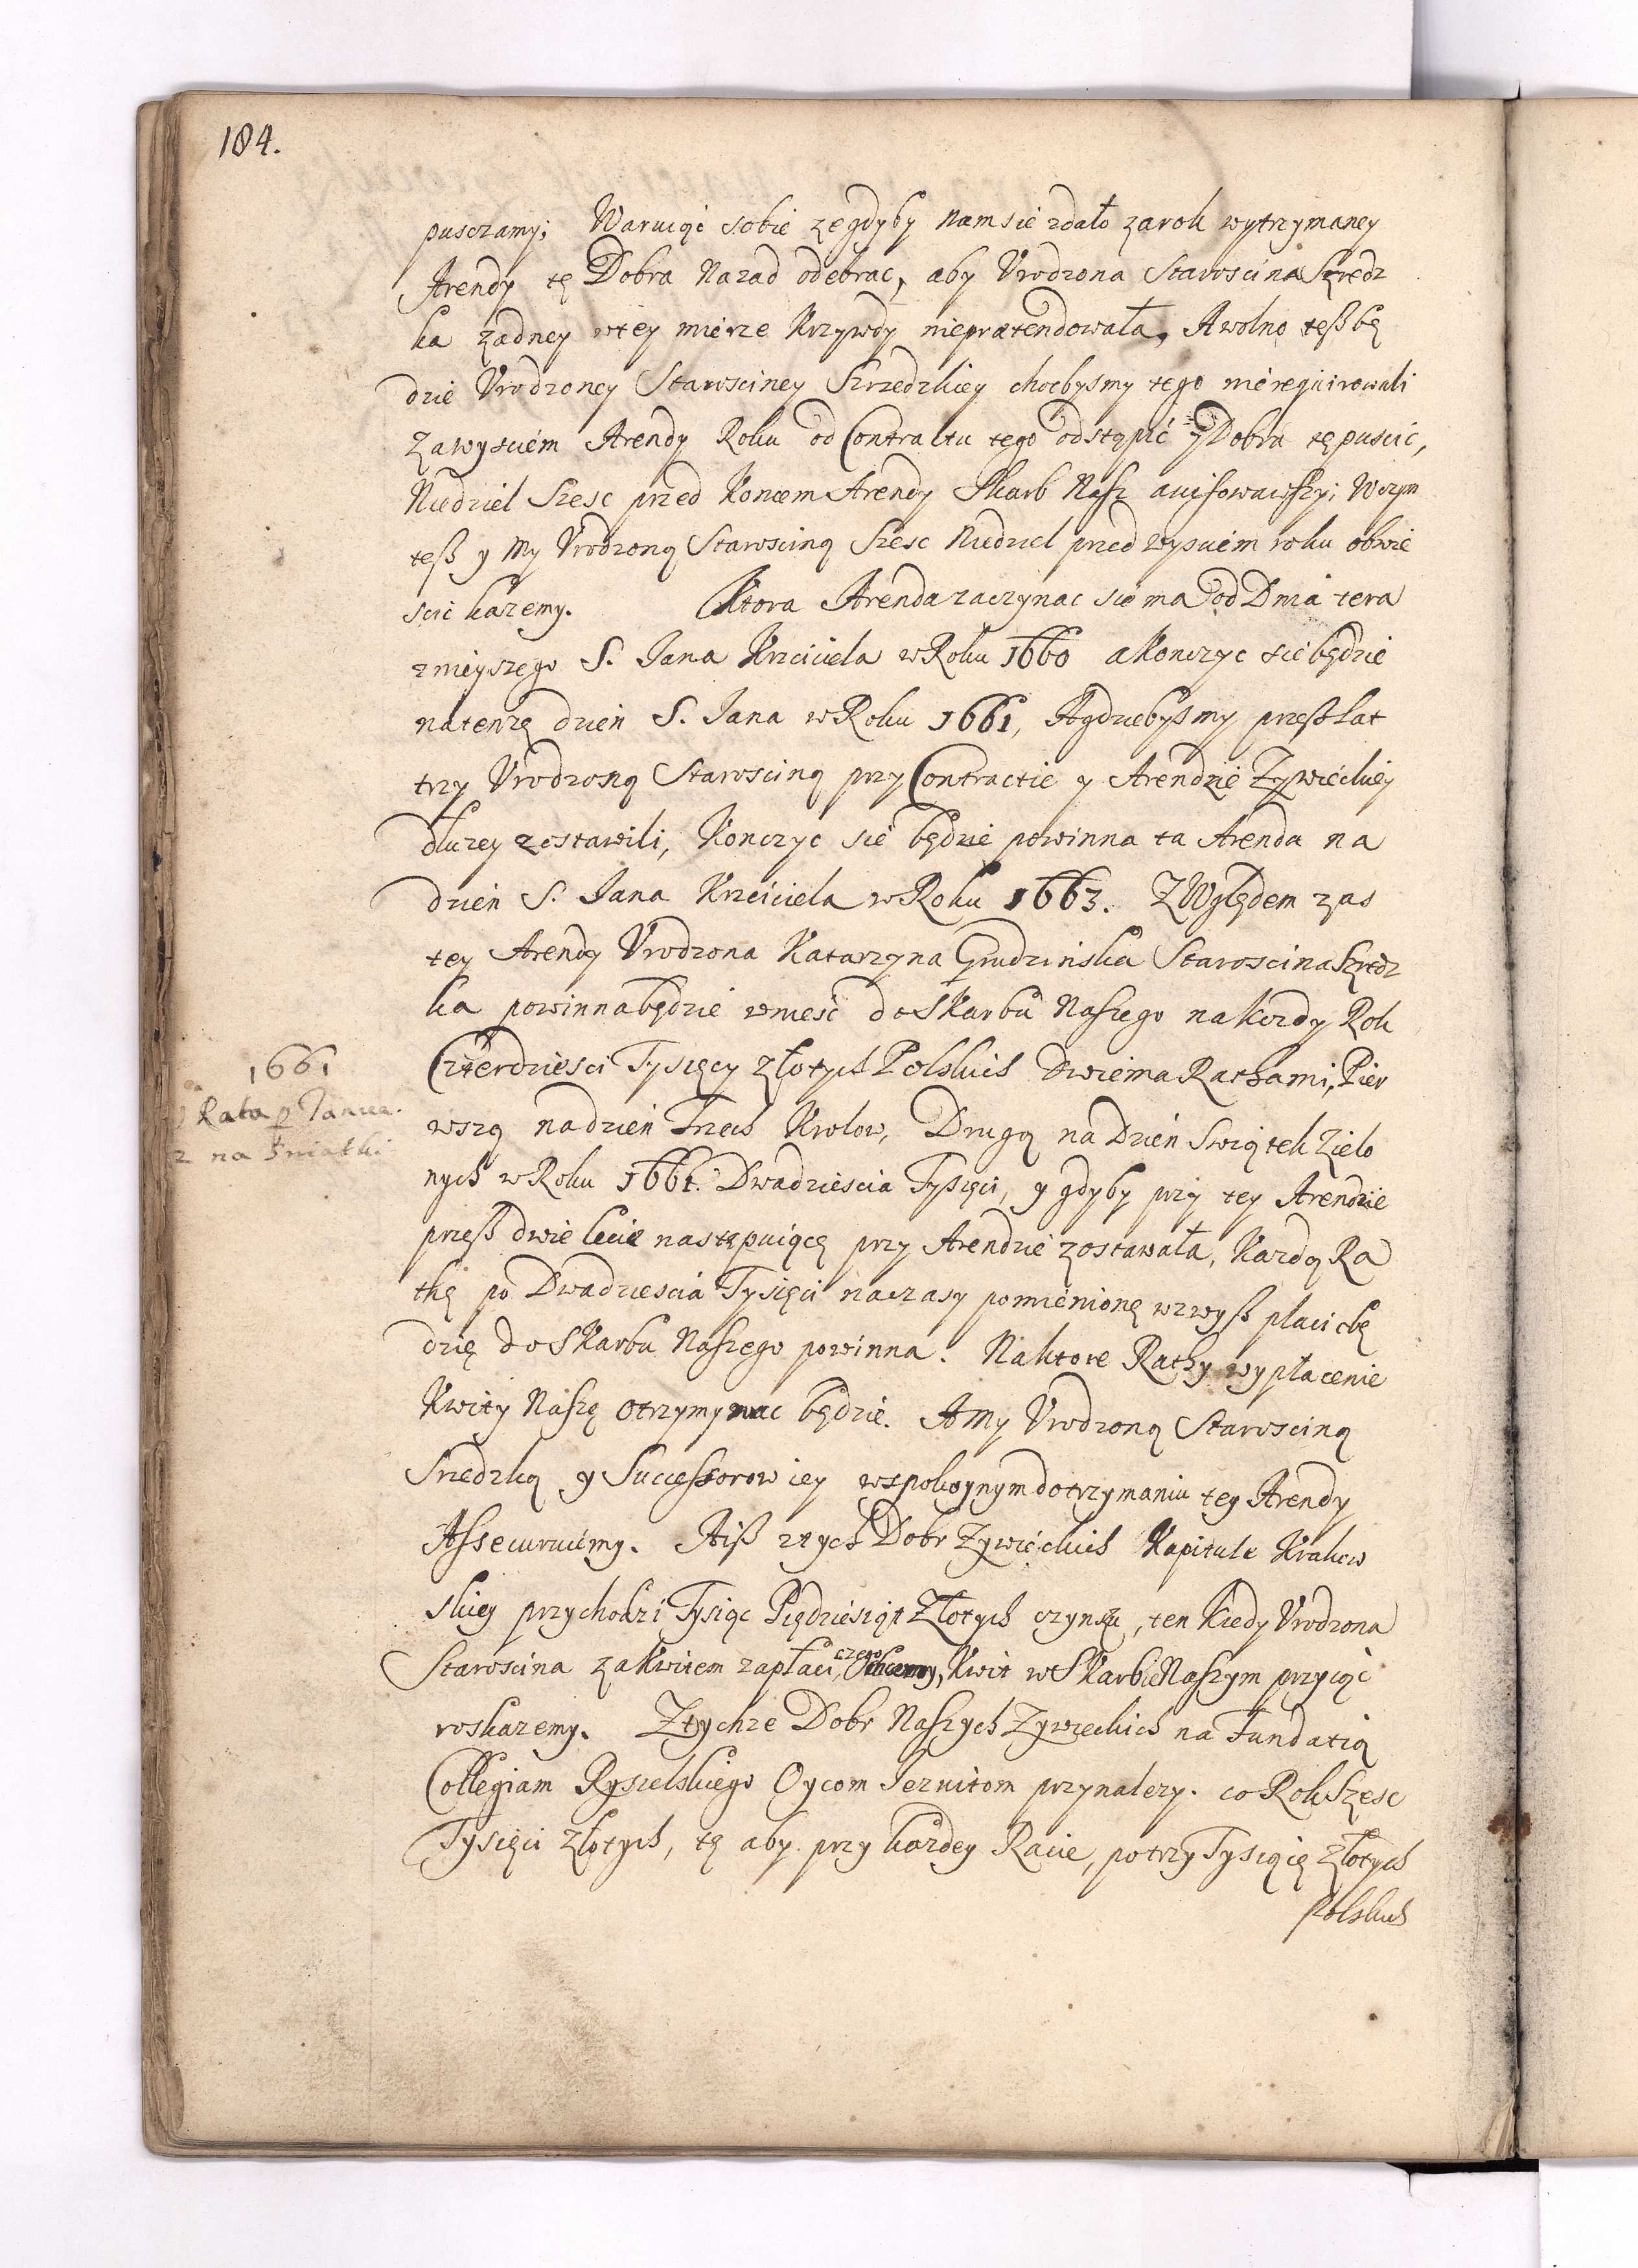 184.
pusczamy; Waruiąc sobie ze gdyby nam sie zdało za rok wytrzymaney
Arendy tę Dobra Nazad odebrac, aby Vrodzona Starościna Szredz
ka zadney wtey mierze Krzywdy niepraetendowała, A wolno teß bę
dzie Vrodzoney Starosciney Szrzedzkiey chocbysmy tego nie requirowali
za wysciem Arendy Roku od Contraktu tego odstąpić y Dobra tę puscic,
Niedziel Szesc przed Koncem Arendy Skarb Nasz auisowawszy; Wczym
teß y My Vrodzoną Starosciną Szesc Niedziel przed wysciem roku obwie
scic kazemy. Ktora Arenda zaczynac sie ma od Dnia tera
znieyszego S. Jana Krzciciela w Roku 1660 a Konczyc sie będzie
na tenze dzien S. Jana w Roku 1661, A gdziebysmy przeß Lat
trzy Vrodzoną Staroscinę przy Contractie y Arendzie Zywieckiey
dłuzey zostawili, Konczyc sie będzie powinna ta Arenda na
dzien S. Jana Krzciciela w Roku 1663. Z Względem zas
tey Arendy Vrodzona Katarzyna Grudzinska Staroscina Szredz
ka powinna będzie wniesć do Skarbu Naszego na Kozdy Rok
Czterdziesci Tysięcy Złotych Polskich Dwiema Rathami, Pier
wszą na dzien Trzech Krolow, Drugą na Dzien Swiątek Zielo
nych w Roku 1661. Dwadziescia Tysięci, y gdyby przy tey Arendzie
przeß dwie lecie nastę̨puiącę przy Arendzie zostawała, Kazdą Ra
thę po Dwadziescia Tysięci na czasy pomienionę wzwyß placic bę
dzię do Skarbu Naszego powinna. Na ktore Rathy wypłacenie
Kwity Naszę otrzymywac będzie. A My Vrodzoną Staroscinę
Srzedzką y Successorow iey w spokoynym dotrzymaniu tey Arendy
Assecuruiemy. A iß z tych Dobr Zywieckich Kapitule Krakow
skiey przychodzi Tysiąc Piędziesiąt Złotych czynszu, ten kiedy Vrodzona
Staroscina za Kwitem zapłaci, czego chcemy, Kwit w Skarbie Naszym przyiąc
roskazemy. Z tychze Dobr Naszych Zywieckich na Fundatią
Collegiam Ryszelskiego Oycom Jezuitom przynalezy. co Rok Szesc
Tysięci złotych, tę aby przy kazdey Racie, po trzy Tysiącę Złotych
Polskich
1661
Rata
2 na Świątki